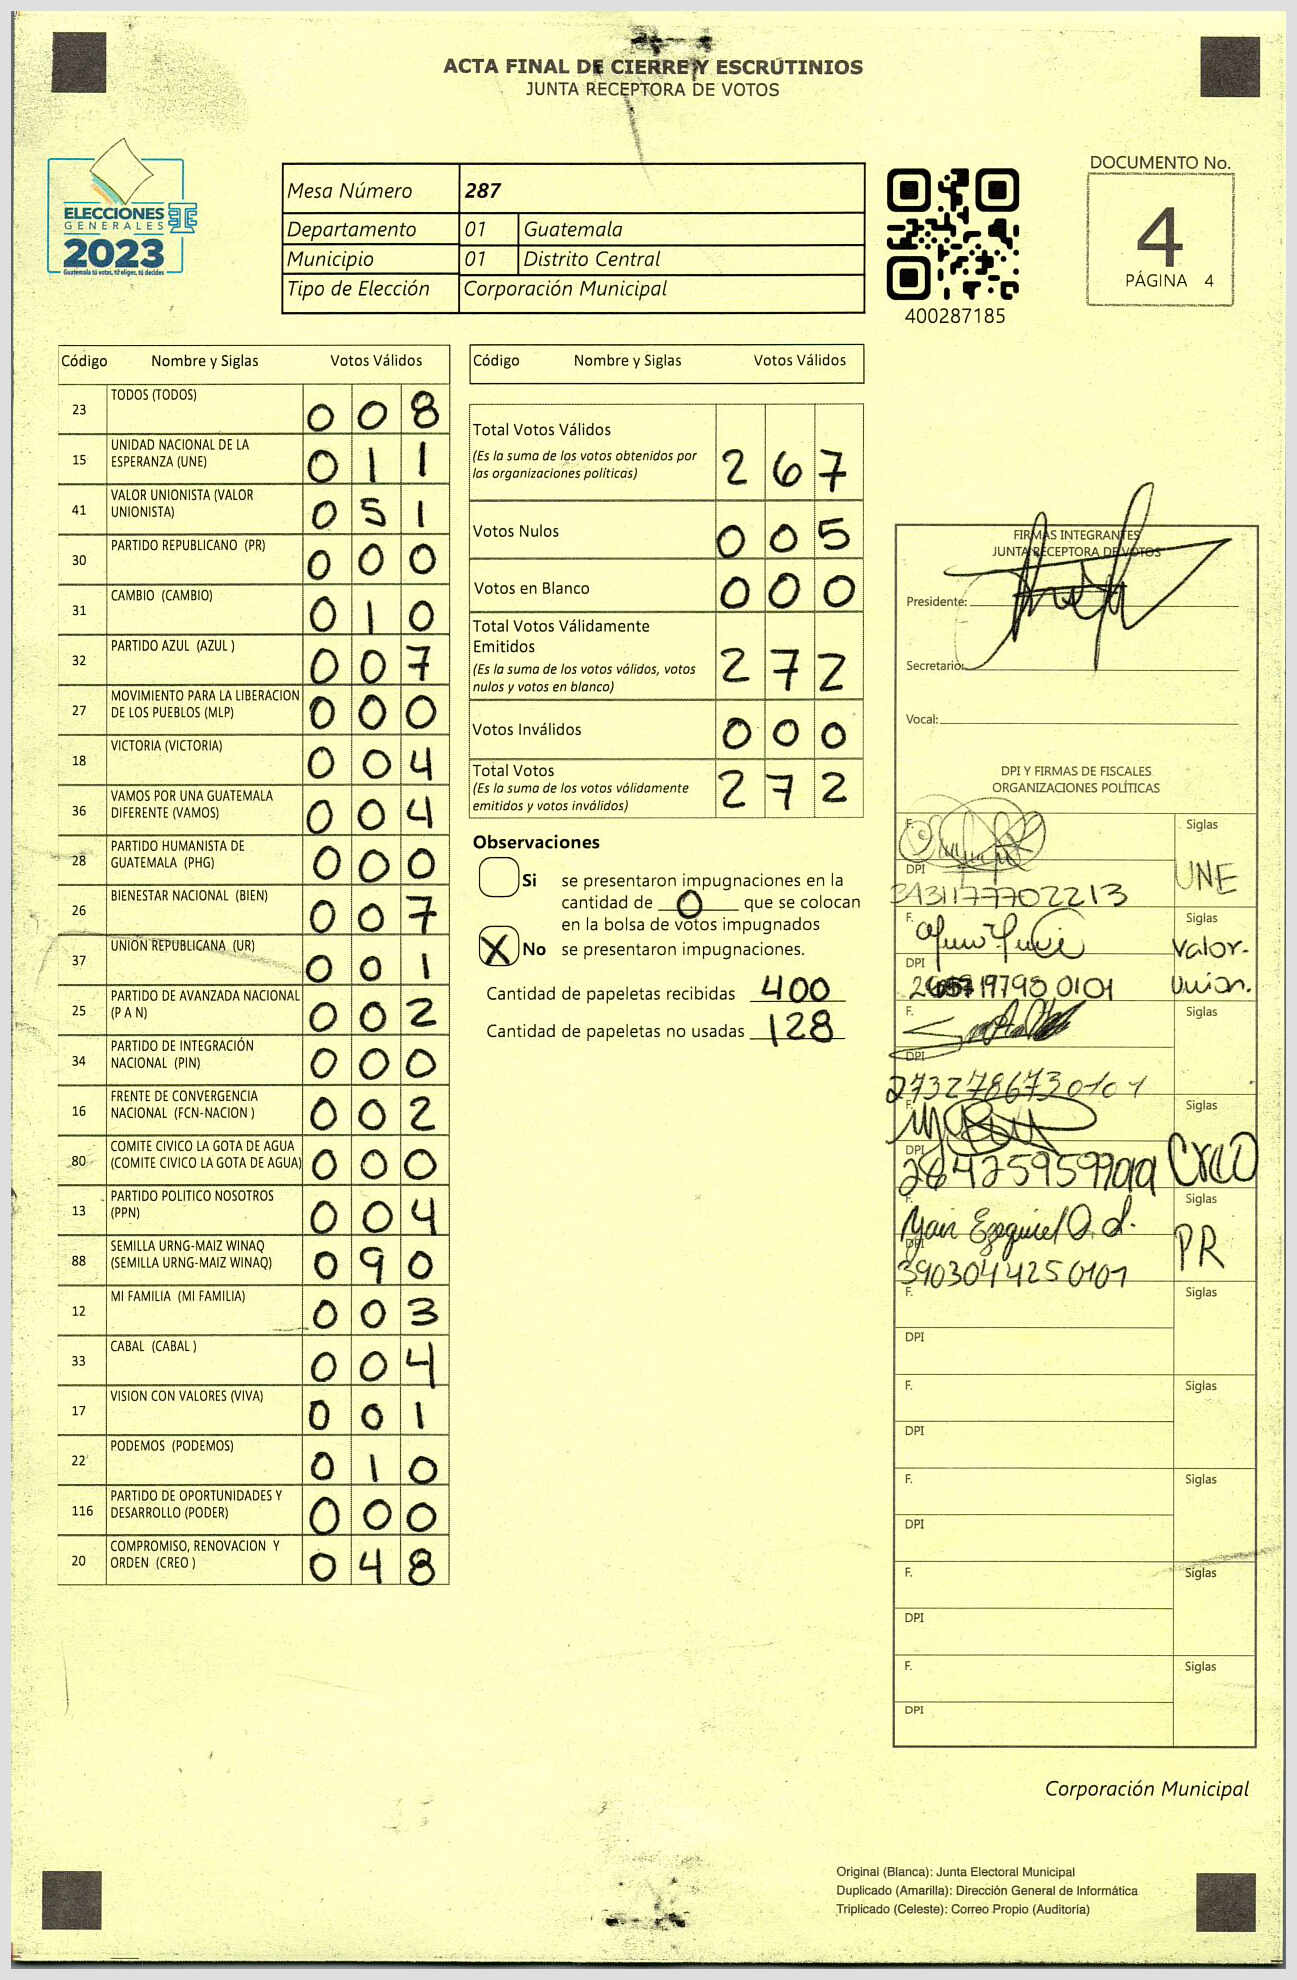 ACTA FINAL DE CIERRE Y ESCRUTINIOS
JUNTA RECEPTORA DE VOTOS
ELECCIONES
GENERALES
2023
Guatemala tú votas, tú eliges, tú decides
Mesa Número 287
Departamento 01 Guatemala
Municipio 01 Distrito Central
Tipo de Elección Corporación Municipal
400287185
DOCUMENTO No.
4
PÁGINA 4
Código Nombre y Siglas Votos Válidos
23 TODOS (TODOS) 0 0 8
15 UNIDAD NACIONAL DE LA ESPERANZA (UNE) 0 1 1
41 VALOR UNIONISTA (VALOR UNIONISTA) 0 5 1
30 PARTIDO REPUBLICANO (PR) 0 0 0
31 CAMBIO (CAMBIO) 0 1 0
32 PARTIDO AZUL (AZUL ) 0 0 7
27 MOVIMIENTO PARA LA LIBERACION DE LOS PUEBLOS (MLP) 0 0 0
18 VICTORIA (VICTORIA) 0 0 4
36 VAMOS POR UNA GUATEMALA DIFERENTE (VAMOS) 0 0 4
28 PARTIDO HUMANISTA DE GUATEMALA (PHG) 0 0 0
26 BIENESTAR NACIONAL (BIEN) 0 0 7
37 UNION REPUBLICANA (UR) 0 0 1
25 PARTIDO DE AVANZADA NACIONAL (P A N) 0 0 2
34 PARTIDO DE INTEGRACIÓN NACIONAL (PIN) 0 0 0
16 FRENTE DE CONVERGENCIA NACIONAL (FCN-NACION ) 0 0 2
80 COMITE CIVICO LA GOTA DE AGUA (COMITE CIVICO LA GOTA DE AGUA) 0 0 0
13 PARTIDO POLITICO NOSOTROS (PPN) 0 0 4
88 SEMILLA URNG-MAIZ WINAQ (SEMILLA URNG-MAIZ WINAQ) 0 9 0
12 MI FAMILIA (MI FAMILIA) 0 0 3
33 CABAL (CABAL ) 0 0 4
17 VISION CON VALORES (VIVA) 0 0 1
22 PODEMOS (PODEMOS) 0 1 0
116 PARTIDO DE OPORTUNIDADES Y DESARROLLO (PODER) 0 0 0
20 COMPROMISO, RENOVACION Y ORDEN (CREO ) 0 4 8
Código Nombre y Siglas Votos Válidos
Total Votos Válidos 2 6 7
(Es la suma de los votos obtenidos por
las organizaciones políticas)
Votos Nulos 0 0 5
Votos en Blanco 0 0 0
Total Votos Válidamente
Emitidos 2 7 2
(Es la suma de los votos válidos, votos
nulos y votos en blanco)
Votos Inválidos 0 0 0
Total Votos 2 7 2
(Es la suma de los votos válidamente
emitidos y votos inválidos)
Observaciones
Si se presentaron impugnaciones en la
cantidad de 0 que se colocan
en la bolsa de votos impugnados
X No se presentaron impugnaciones.
Cantidad de papeletas recibidas 400
Cantidad de papeletas no usadas 128
FIRMAS INTEGRANTES
JUNTA RECEPTORA DE VOTOS
Presidente:
Secretario:
Vocal:
DPI Y FIRMAS DE FISCALES
ORGANIZACIONES POLÍTICAS
F. Siglas
DPI UNE
3431177702213
F. Siglas
DPI Valor-
Union.
F. Siglas
DPI
2732786730101
F. Siglas
DPI CREO
F. Siglas
Yair Ezequiel
DPI PR
3903044250101
F. Siglas
DPI
F. Siglas
DPI
F. Siglas
DPI
F. Siglas
DPI
F. Siglas
DPI
Corporación Municipal
Original (Blanca): Junta Electoral Municipal
Duplicado (Amarilla): Dirección General de Informática
Triplicado (Celeste): Correo Propio (Auditoría)